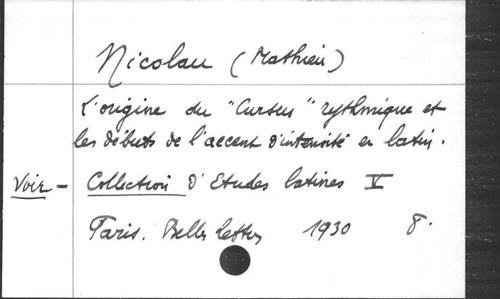 Nicolau (Mathieu)
L'origine du "Cursus" rythmique et
les débuts de l'accent d'intensité en latin.
Voir - Collection d'Etudes latines V
Paris. Belles Lettres 1930 8°.